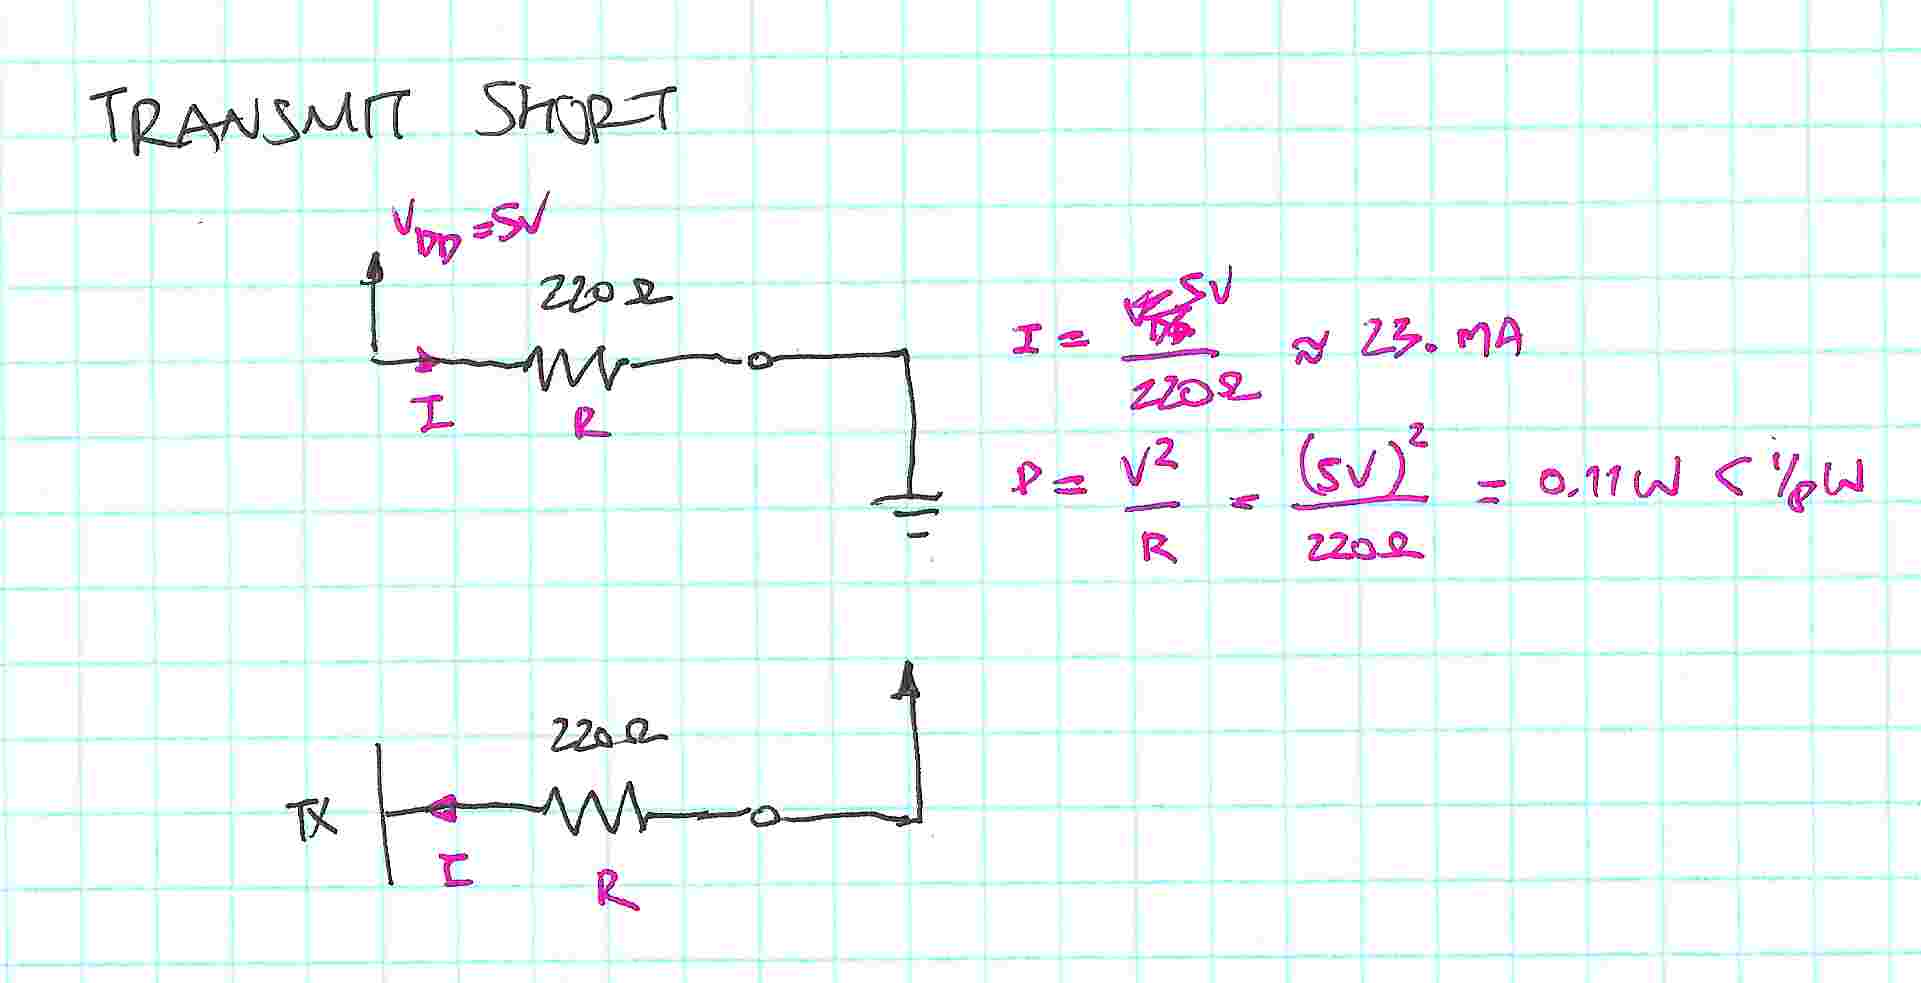 TRANSMIT SHORT
VDD = 5V
220Ω
I
R
I = 5V / 220Ω ≈ 23. mA
P = V² / R = (5V)² / 220Ω = 0.11W < 1/8W
220Ω
TX
I
R